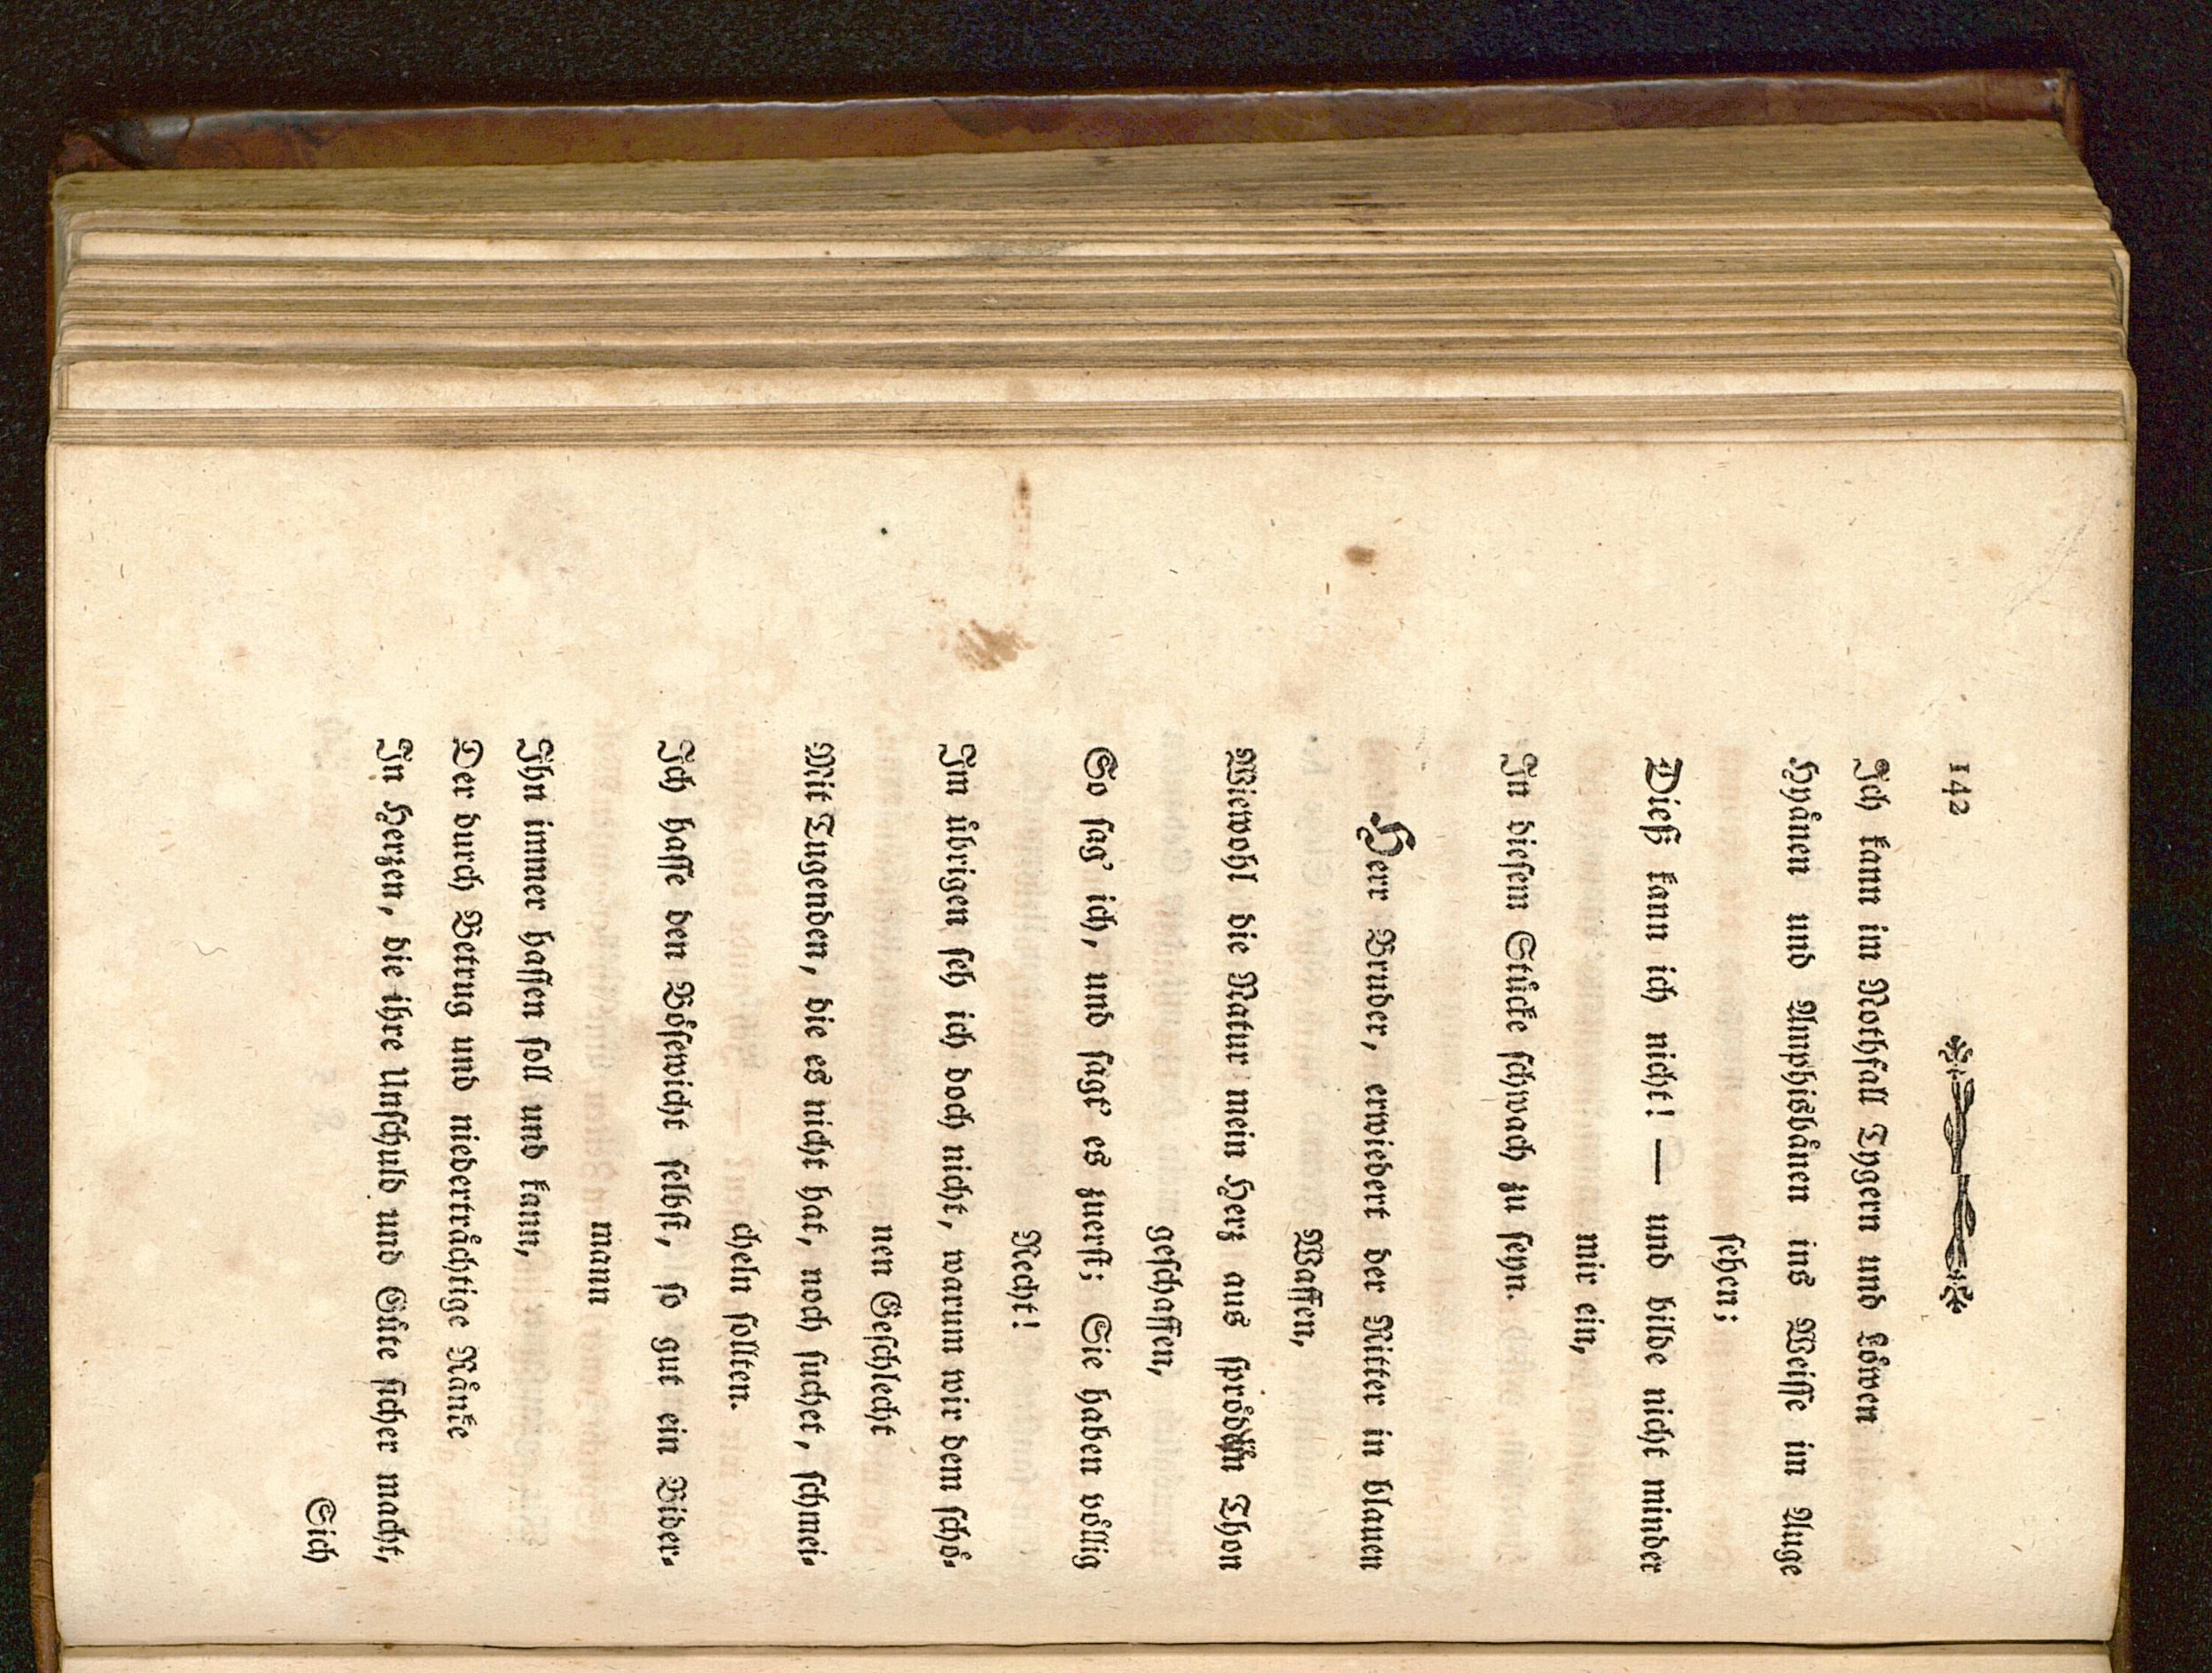 142
Ich kann im Nothfall Tygern und Löwen
Hyänen und Amphisbänen ins Weiſſe im Auge
ſehen;
Dieß kann ich nicht! — und bilde nicht minder
mir ein,
In dieſem Stücke ſchwach zu ſeyn.
Herr Bruder, erwiedert der Ritter in blauen
Waffen,
Wiewohl die Natur mein Herz aus Thon
geſchaffen,
So ſag' ich, und ſagt' es zuerſt; Sie haben völlig
Recht!
Im übrigen ſeh ich doch nicht, warum wir dem ſchö-
nen Geſchlecht
Mit Tugenden, die es nicht hat, noch ſuchet, ſchmei-
cheln ſollten.
Ich haſſe den Böſewicht ſelbſt, ſo gut ein Bider-
mann
Ihn immer haſſen ſoll und kann,
Der durch Betrug und niederträchtige Ränke
In Herzen, die ihre Unſchuld und Güte ſicher macht,
Sich